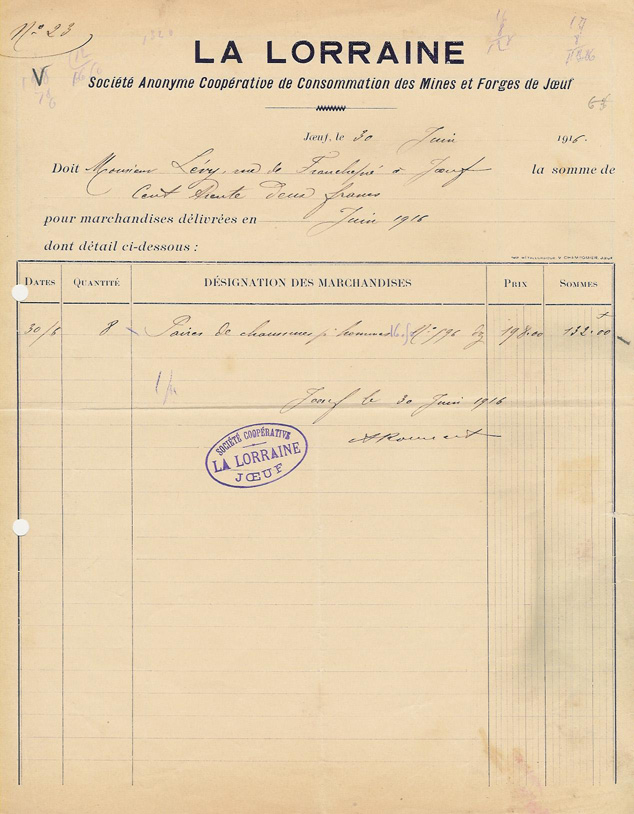 N° 23
LA LORRAINE
Société Anonyme Coopérative de Consommation des Mines et Forges de Jœuf
Jœuf, le 30 Juin 1916.
Doit Monsieur Lévy, rue de Franchepré à Jœuf la somme de
Cent trente deux francs
pour marchandises délivrées en Juin 1916
dont détail ci-dessous :
DATES QUANTITÉ DÉSIGNATION DES MARCHANDISES PRIX SOMMES
30/6 8 Paires de chaussures pr hommes N° 596 dz 198.00 132.00
Jœuf le 30 Juin 1916
SOCIÉTÉ COOPÉRATIVE
LA LORRAINE
JŒUF